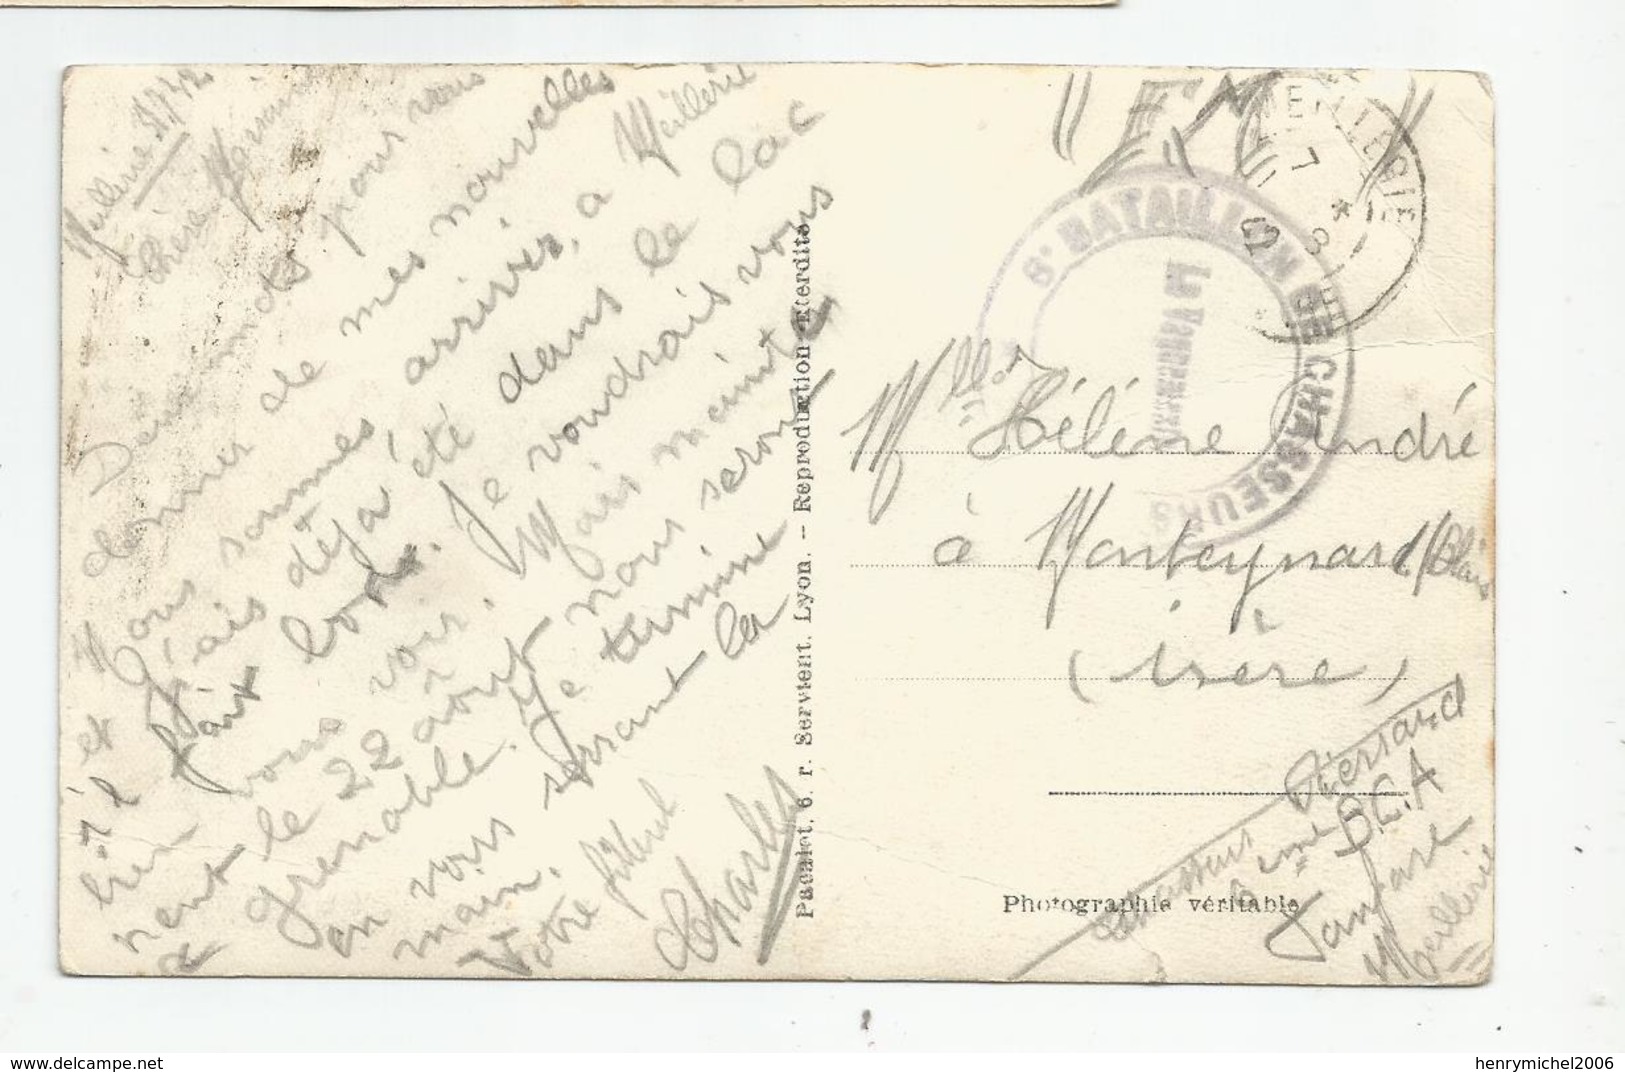 Meillerie
Chère Marraine
Deux mots pour vous
donner de mes nouvelles
et Nous sommes, arriver, a Meillerie
J'ais déja été dans le lac
et il fait bon. Je voudrais vous
bien vous voir. Mais mainte
nent le 22 août nous serons
a grenoble. Je termine
en vous serrant la
main.
Votre filleul
Charles
Pacalet, 6, r. Servient, Lyon. - Reproduction Interdite
F M
MEILLERIE
7 * 8
42
6e BATAILLON DE CHASSEURS
Le Vaguemestre
Mlle Hélène André
à Monteynard
(isère)
Chasseur Pierrard
6 eme B.C.A
fanfare
Meillerie
Photographie véritable
henrymichel2006